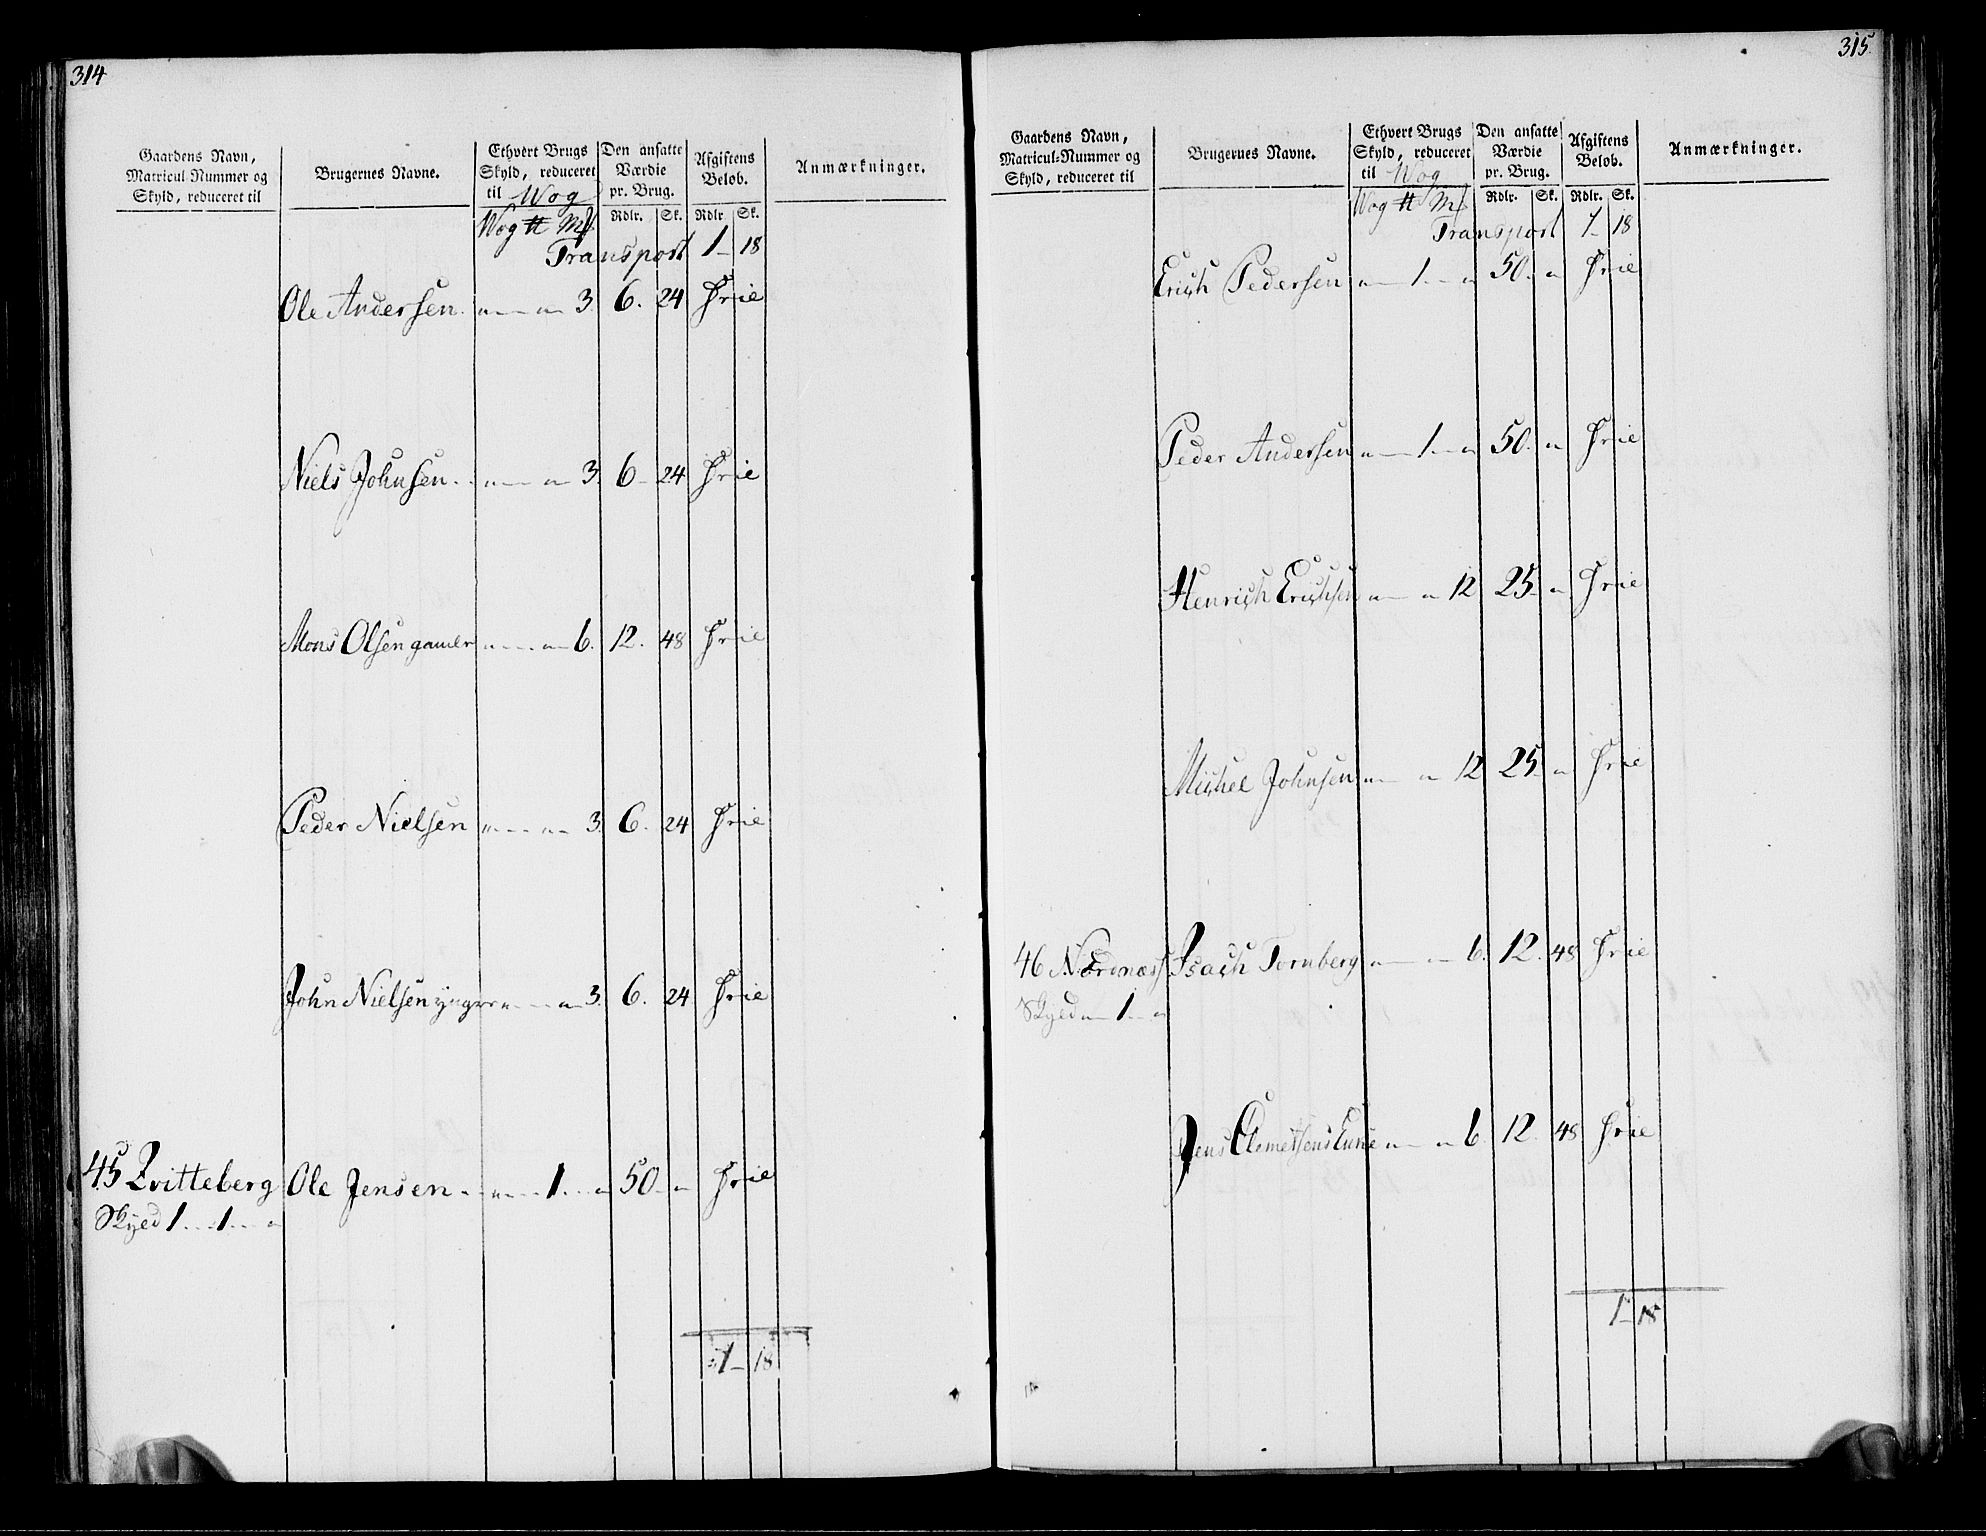 314
Gaardens Navn,
Matricul Nummer og
Skyld, reduceret til
Brugernes Navne.
Ethvert Brugs
Skyld, reduceret
til Wog
Den ansatte
Værdie
pr. Brug.
Afgiftens
Beløb.
Anmærkninger.
Wog ℔ Mk Rdlr. Sk. Rdlr. Sk.
Transport 1 - 18
Ole Andersen 3. 6. 24 Frie
Niels Johnsen 3. 6 - 24 Frie
Mons Olsen gamle 6. 12. 48 Frie
Peder Nielsen 3. 6. 24 Frie
John Nielsen yngre 3. 6. 24 Frie
45 Qvitteberg Ole Jensen 1 " 50 - " Frie
Skyld 1 - 1 - "
1 - 18
315
Gaardens Navn,
Matricul-Nummer og
Skyld, reduceret til
Brugernes Navne.
Ethvert Brugs
Skyld, reduceret
til Wog
Den ansatte
Værdie
pr. Brug.
Afgiftens
Beløb.
Anmærkninger.
Wog ℔ Mk Rdlr. Sk. Rdlr. Sk.
Transport 1 - 18
Erich Pedersen " 1 " 50. " Frie
Peder Andersen " 1 " 50. " Frie
Henrich Erichsen " " 12 25 - " Frie
Michel Johnsen " " 12 25 - " Frie
46 Nordnæss Isach Tornberg " " 6. 12. 48 Frie
Skyld " 1 - "
Jens Clemetsens Enke " " 6 12. 48 Frie
1 - 18